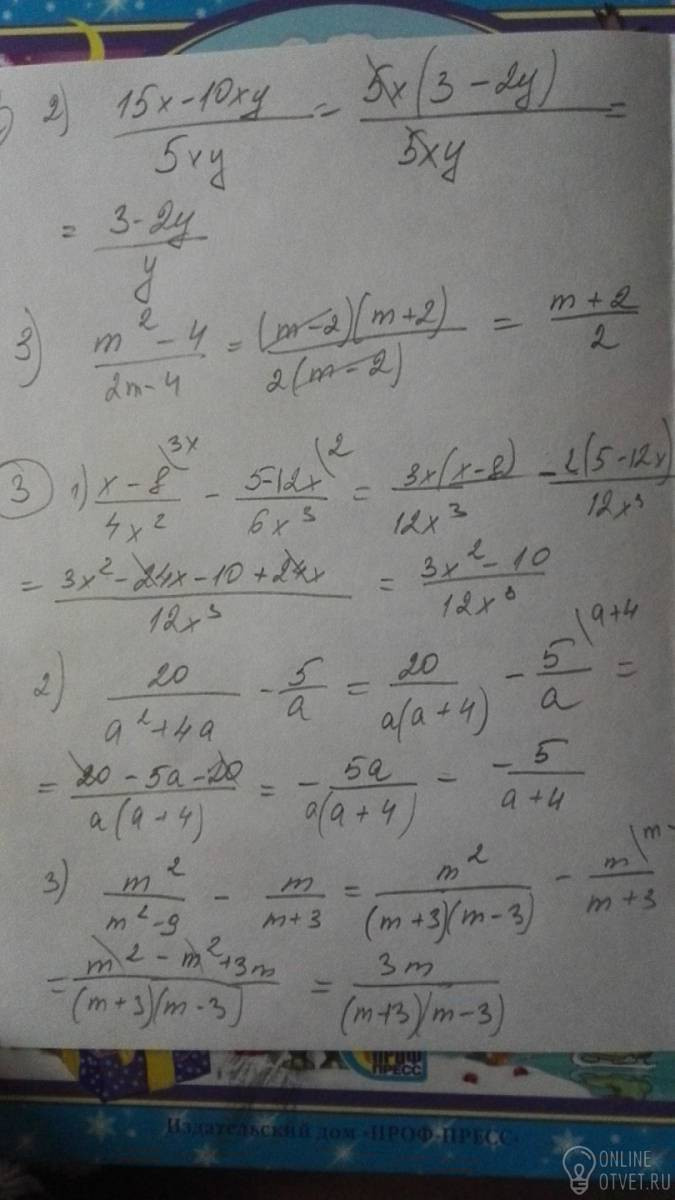 2) (15x-10xy)/(5xy) = (5x(3-2y))/(5xy) =
= (3-2y)/y
3) (m²-4)/(2m-4) = ((m-2)(m+2))/(2(m-2)) = (m+2)/2
③ 1) (x-8)/(4x²) \3x - (5-12x)/(6x³) \2 = (3x(x-8))/(12x³) - (2(5-12x))/(12x³)
= (3x²-24x-10+24x)/(12x³) = (3x²-10)/(12x³)
2) 20/(a²+4a) - 5/a = 20/(a(a+4)) - 5/a \a+4 =
= (20-5a-20)/(a(a+4)) = -5a/(a(a+4)) = -5/(a+4)
3) m²/(m²-9) - m/(m+3) = m²/((m+3)(m-3)) - m/(m+3) \m-
= (m²-m²+3m)/((m+3)(m-3)) = 3m/((m+3)(m-3))
ПРОФ
ПРЕСС
Издательский дом «ПРОФ-ПРЕСС»
ONLINE
OTVET.RU